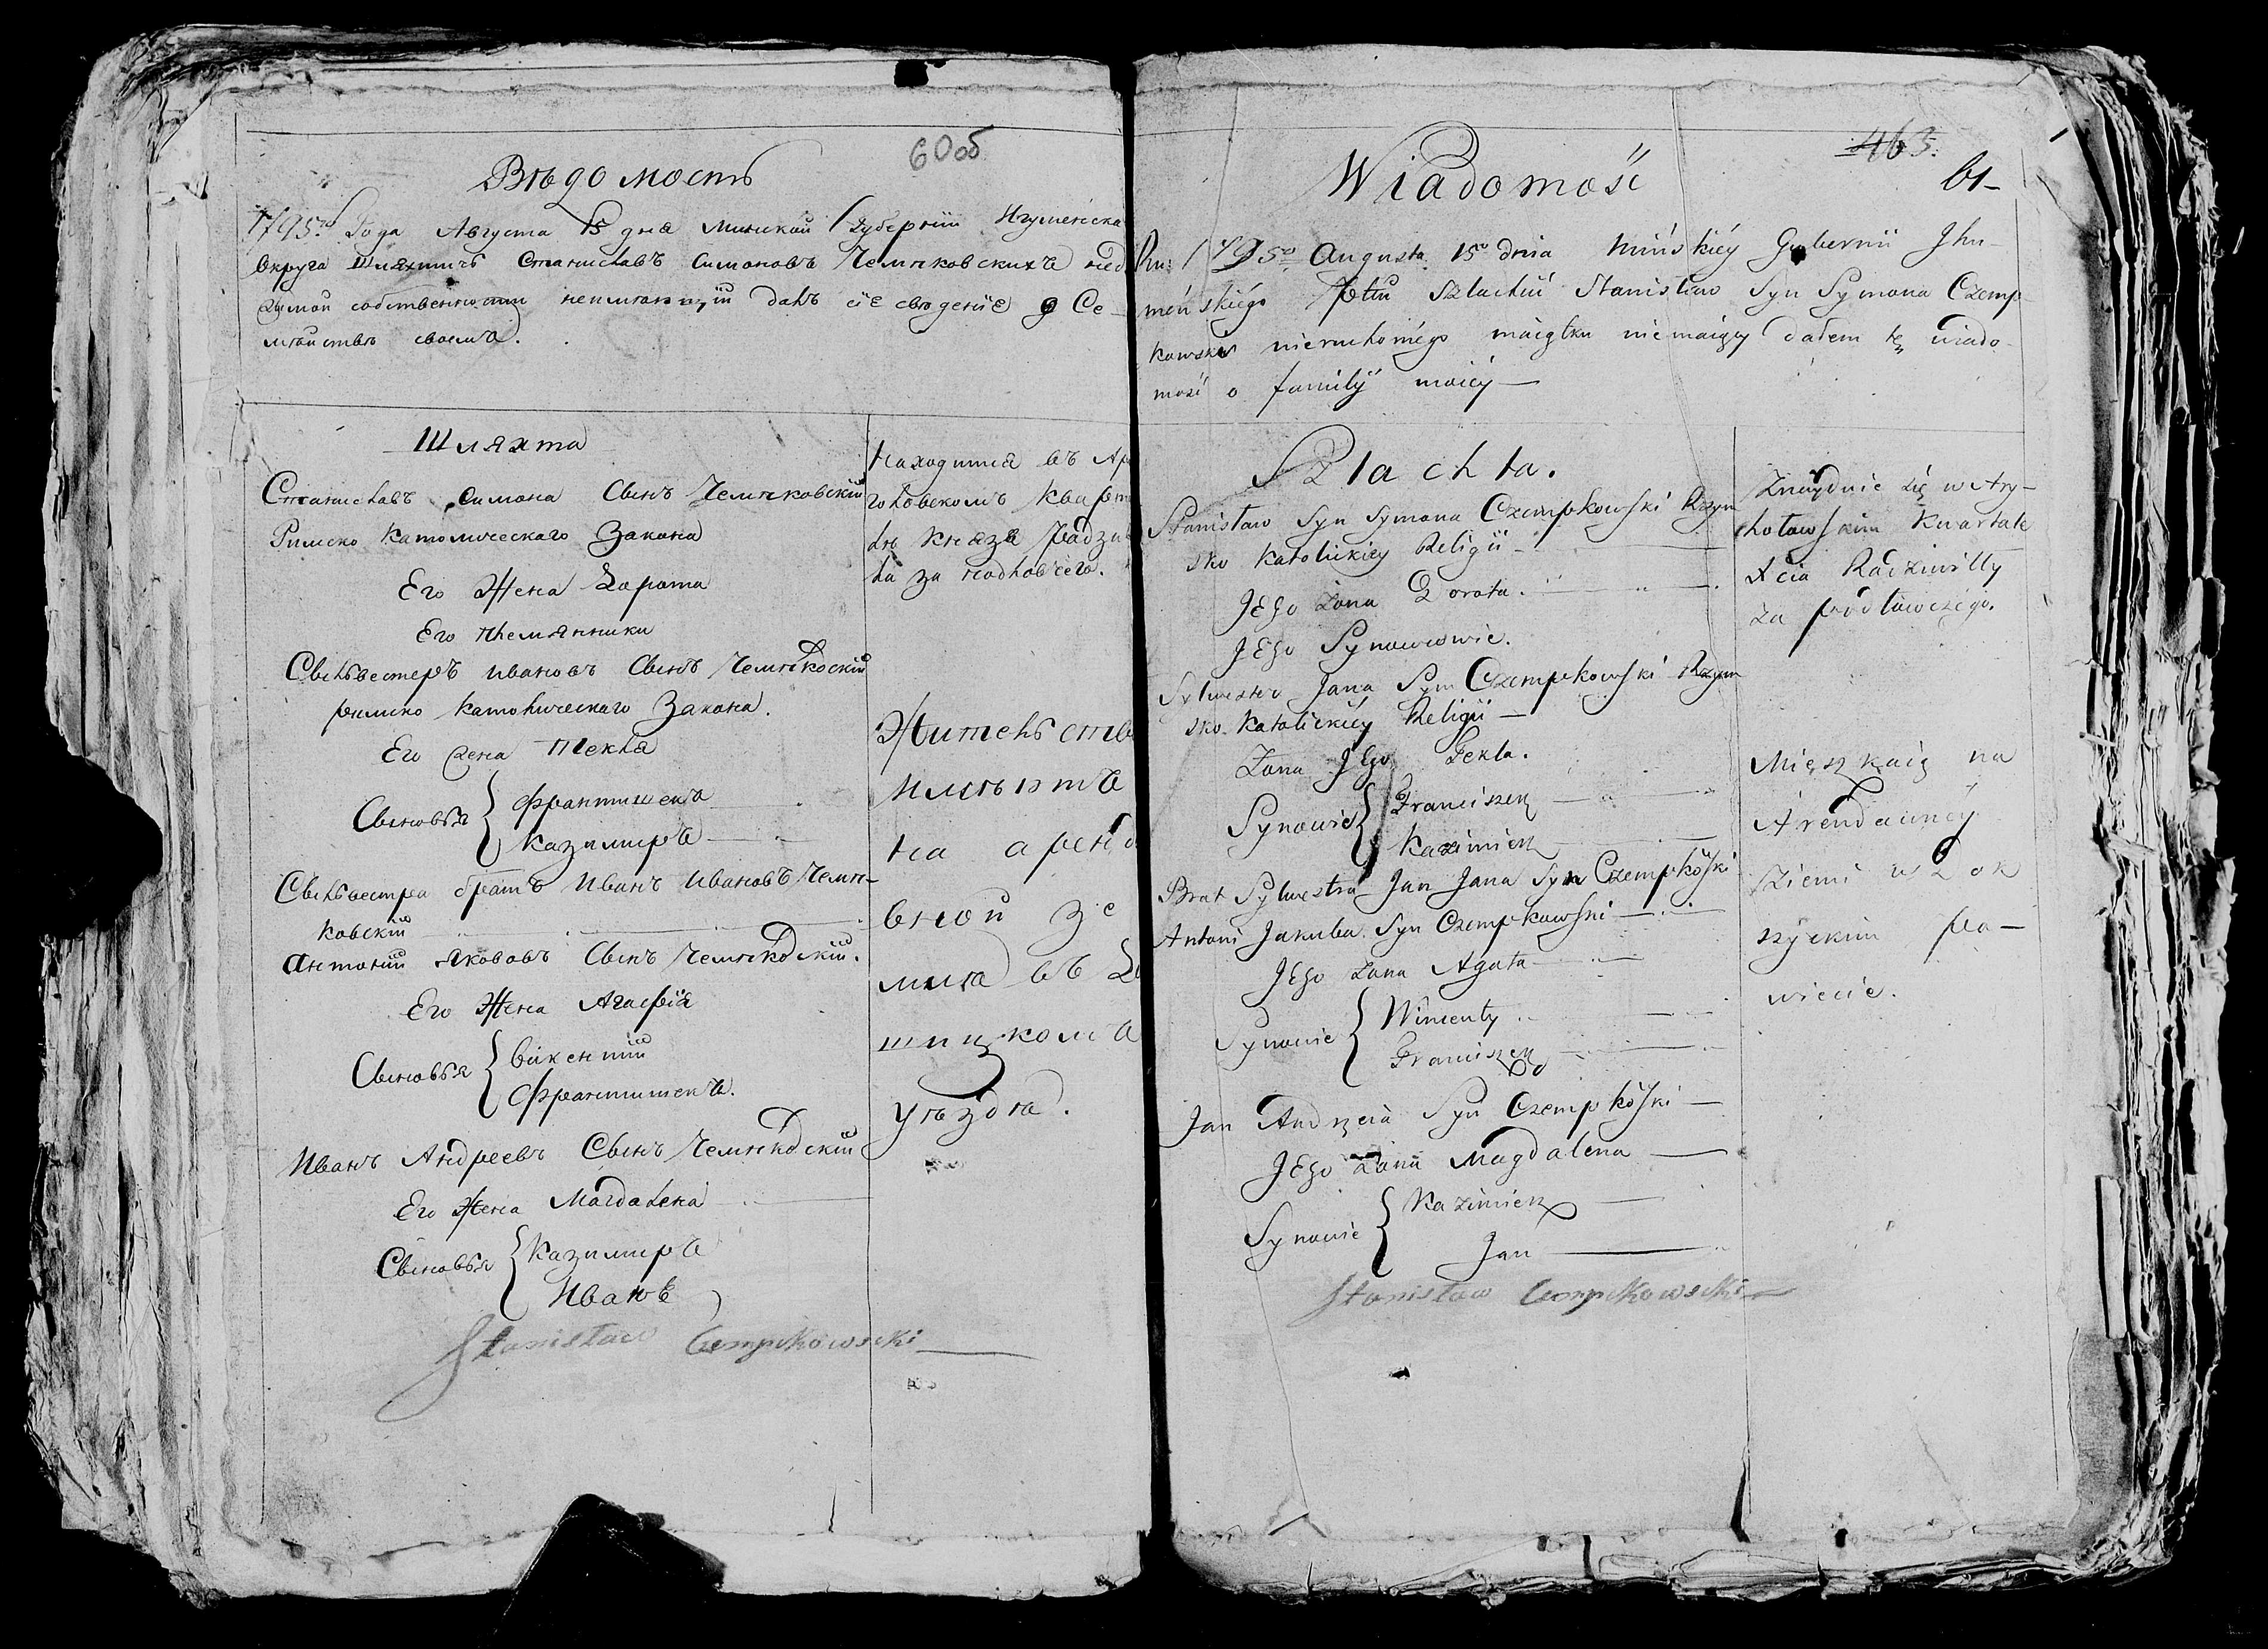 60об
Вѣдомость
1795го Года Августа 15 дня Минской Губерніи Игуменска
Округа Шляхтичъ Станиславъ Симоновъ Чемпковскихъ нед
жимой собственности неимѣющій далъ сіе сведеніе о Се
мѣйствѣ своемъ.
Шляхта
Станиславъ Симона Сынъ Чемпковскій
Римско Католическаго Закона
Его Жена Дорота
Его племянники
Сыльвестеръ Ивановъ Сынъ Чемпковскій
римско Католическаго Закона.
Его Жена Текля
Сыновья { Франтишекъ
Казимиръ
Сыльвестра братъ Иванъ Ивановъ Чемп-
ковскій
Антоній Яковавъ Сынъ Чемпковскій.
Его Жена Агафія
Сыновья { Викентій
Франтишекъ.
Иванъ Андреевъ Сынъ Чемпковскій
Его Жена Магдалена
Сыновья { Казимиръ
Иванъ
Stanisław Czempkowscki
находится въ Ар
головскомъ Кварт
лѣ Князя Радзив
ла за подловчего.
Жительств
имѣютъ
на аренд
вной зе
млѣ въ До
шицкомъ
уѣздѣ.
463.
61
Wiadomość
Ru: 1795go Augusta 15o dnia Mińskiéy Gubernii Jhu-
meńskiégo Ptu Szlachcic Stanisław Syn Symona Czemp
kowski nieruchomégo maiątku niemaiący dałem tę wiado
mość o familÿ moiéy
Szlachta.
Stanisław Syn Symona Czempkowski Rzym
sko Katolickiey Religii
JEgo Zona Dorota.
JEgo Synowcowie.
Sylwester Jana Syn Czempkowski Rzym
sko. Katolickiéy Religii
Zona JEgo Tekla.
Synowie { Franciszek
Kazimierz
Brat Sylwestra Jan Jana Syn Czempkoski
Antoni Jakuba Syn Czempkowski
JEgo Zona Agata
Synowie { Wincenty
Franciszek
Jan Andrzeia Syn Czempkoski
JEgo Zona Magdalena
Synowie { Kazimierz
Jan
Stanisław Czempkowscki
Znayduie się w Ary-
hołowskim Kwartale
Xcia Radziwiłły
za podłowczégo.
Mieszkaią na
Arendowney
Ziemi w Dok
szyckim po-
wiecie.